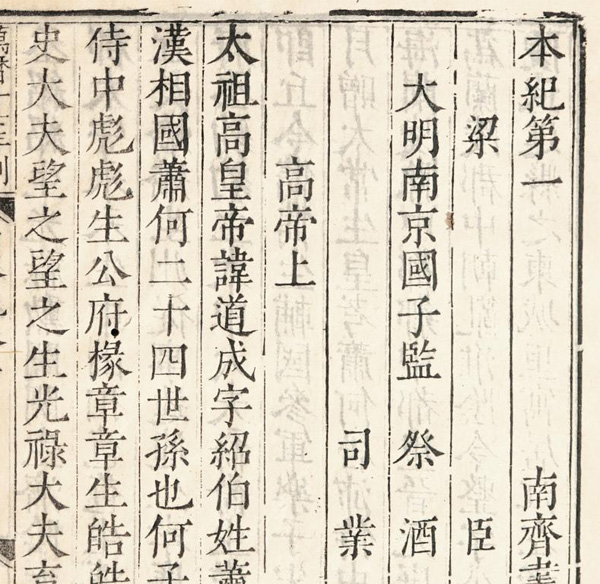 本紀第一 南齊書
梁 臣
大明南京國子監 祭 酒
司 業
高帝上
太祖高皇帝諱道成字紹伯姓蕭
漢相國蕭何二十四世孫也何子
侍中彪彪生公府椽章章生皓皓
史大夫望之望之生光祿大夫育
萬曆十年刊